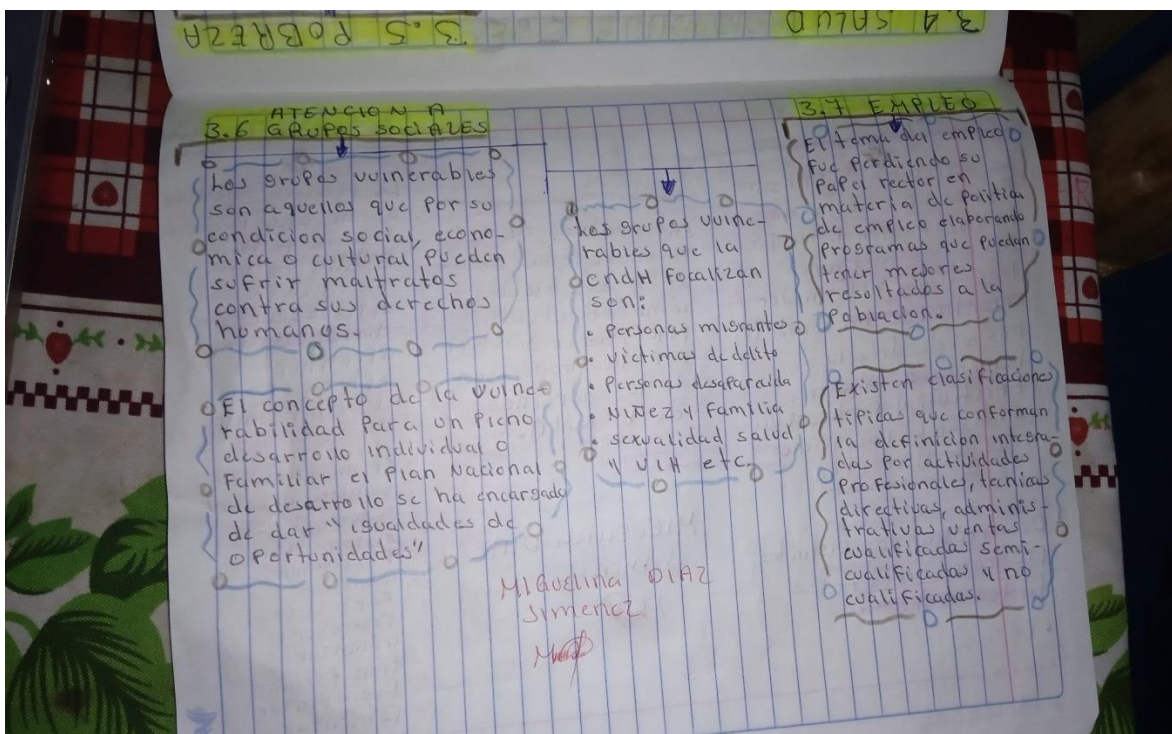 3.5 POBREZA
3.4 SALUD
3.6 ATENCION A
GRUPOS SOCIALES
Los grupos vulnerables
son aquellos que por su
condicion social, econo-
mica o cultural pueden
sufrir maltratos
contra sus derechos
humanos.
El concepto de la vulne-
rabilidad para un pleno
desarrollo individual o
familiar el Plan Nacional
de desarrollo se ha encargado
de dar "igualdades de
oportunidades"
Los grupos vulne-
rables que la
CNDH focalizan
son:
• Personas migrantes
• Victimas de delito
• Personas desaparaida
• NIÑEZ y familia
• sexualidad salud
y VIH etc
3.7 EMPLEO
El tema del empleo
fue perdiendo su
papel rector en
materia de politica
de empleo elaborando
programas que puedan
tener mejores
resultados a la
poblacion.
Existen clasificaciones
tipicas que conforman
la definicion integra-
das por actividades
profesionales, tecnicas
directivas, adminis-
trativas ventas
cualificadas semi-
cualificadas y no
cualificadas.
MIQUELINA DIAZ
Jimenez